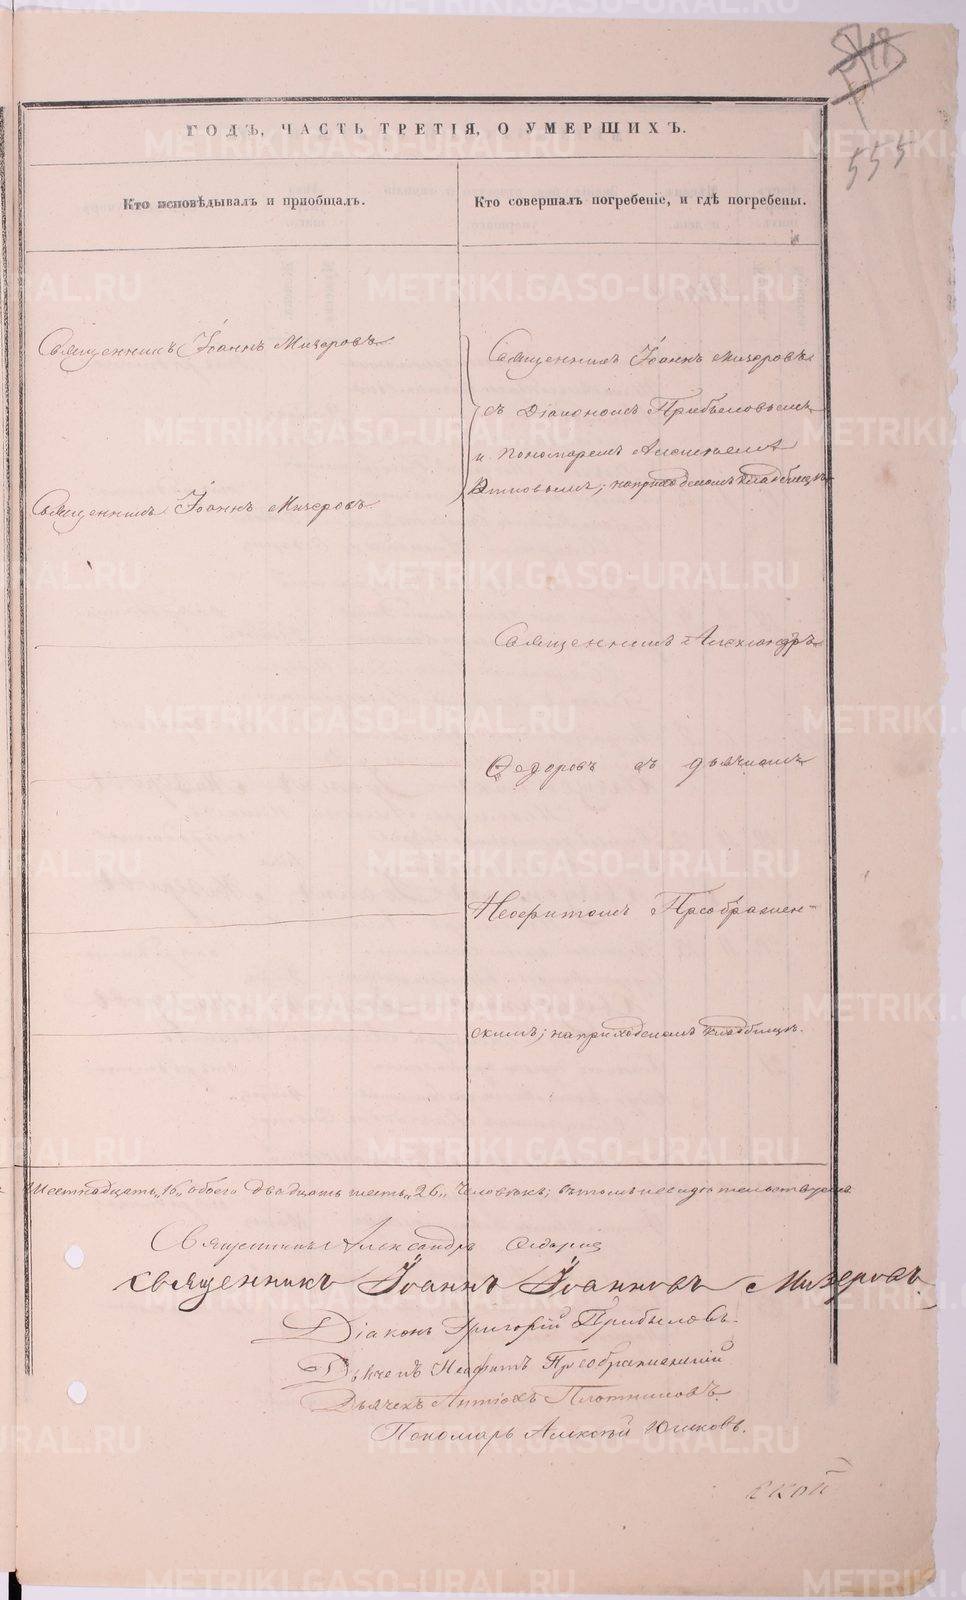 518
555
ГОДЪ, ЧАСТЬ ТРЕТІЯ, О УМЕРШИХЪ.
Кто исповѣдывалъ и пріобщалъ.
Кто совершалъ погребеніе, и гдѣ погребены.
Священникъ Іоаннъ Мизеровъ
Священникъ Іоаннъ Мизеровъ
съ Діакономъ Прибыловымъ
и Пономаремъ Алексѣемъ
на приходскомъ кладбищѣ
Священникъ Іоаннъ Мизеровъ
Священникъ Александръ
Федоровъ съ дьячкомъ
Неофитомъ Преображен-
скимъ; на приходскомъ кладбищѣ.
Шестнадцать „16„ обоего двадцать шесть „26„ человѣкъ; въ томъ и свидѣтельствуемъ
Священникъ Александръ
Священникъ Іоаннъ Іоанновъ Мизеровъ
Діаконъ Григорій Прибыловъ.
Дьячекъ Неофитъ Преображенскій
Дьячекъ Антіохъ Плотниковъ
Пономарь Алексѣй Юшковъ.
METRIKI.GASO-URAL.RU